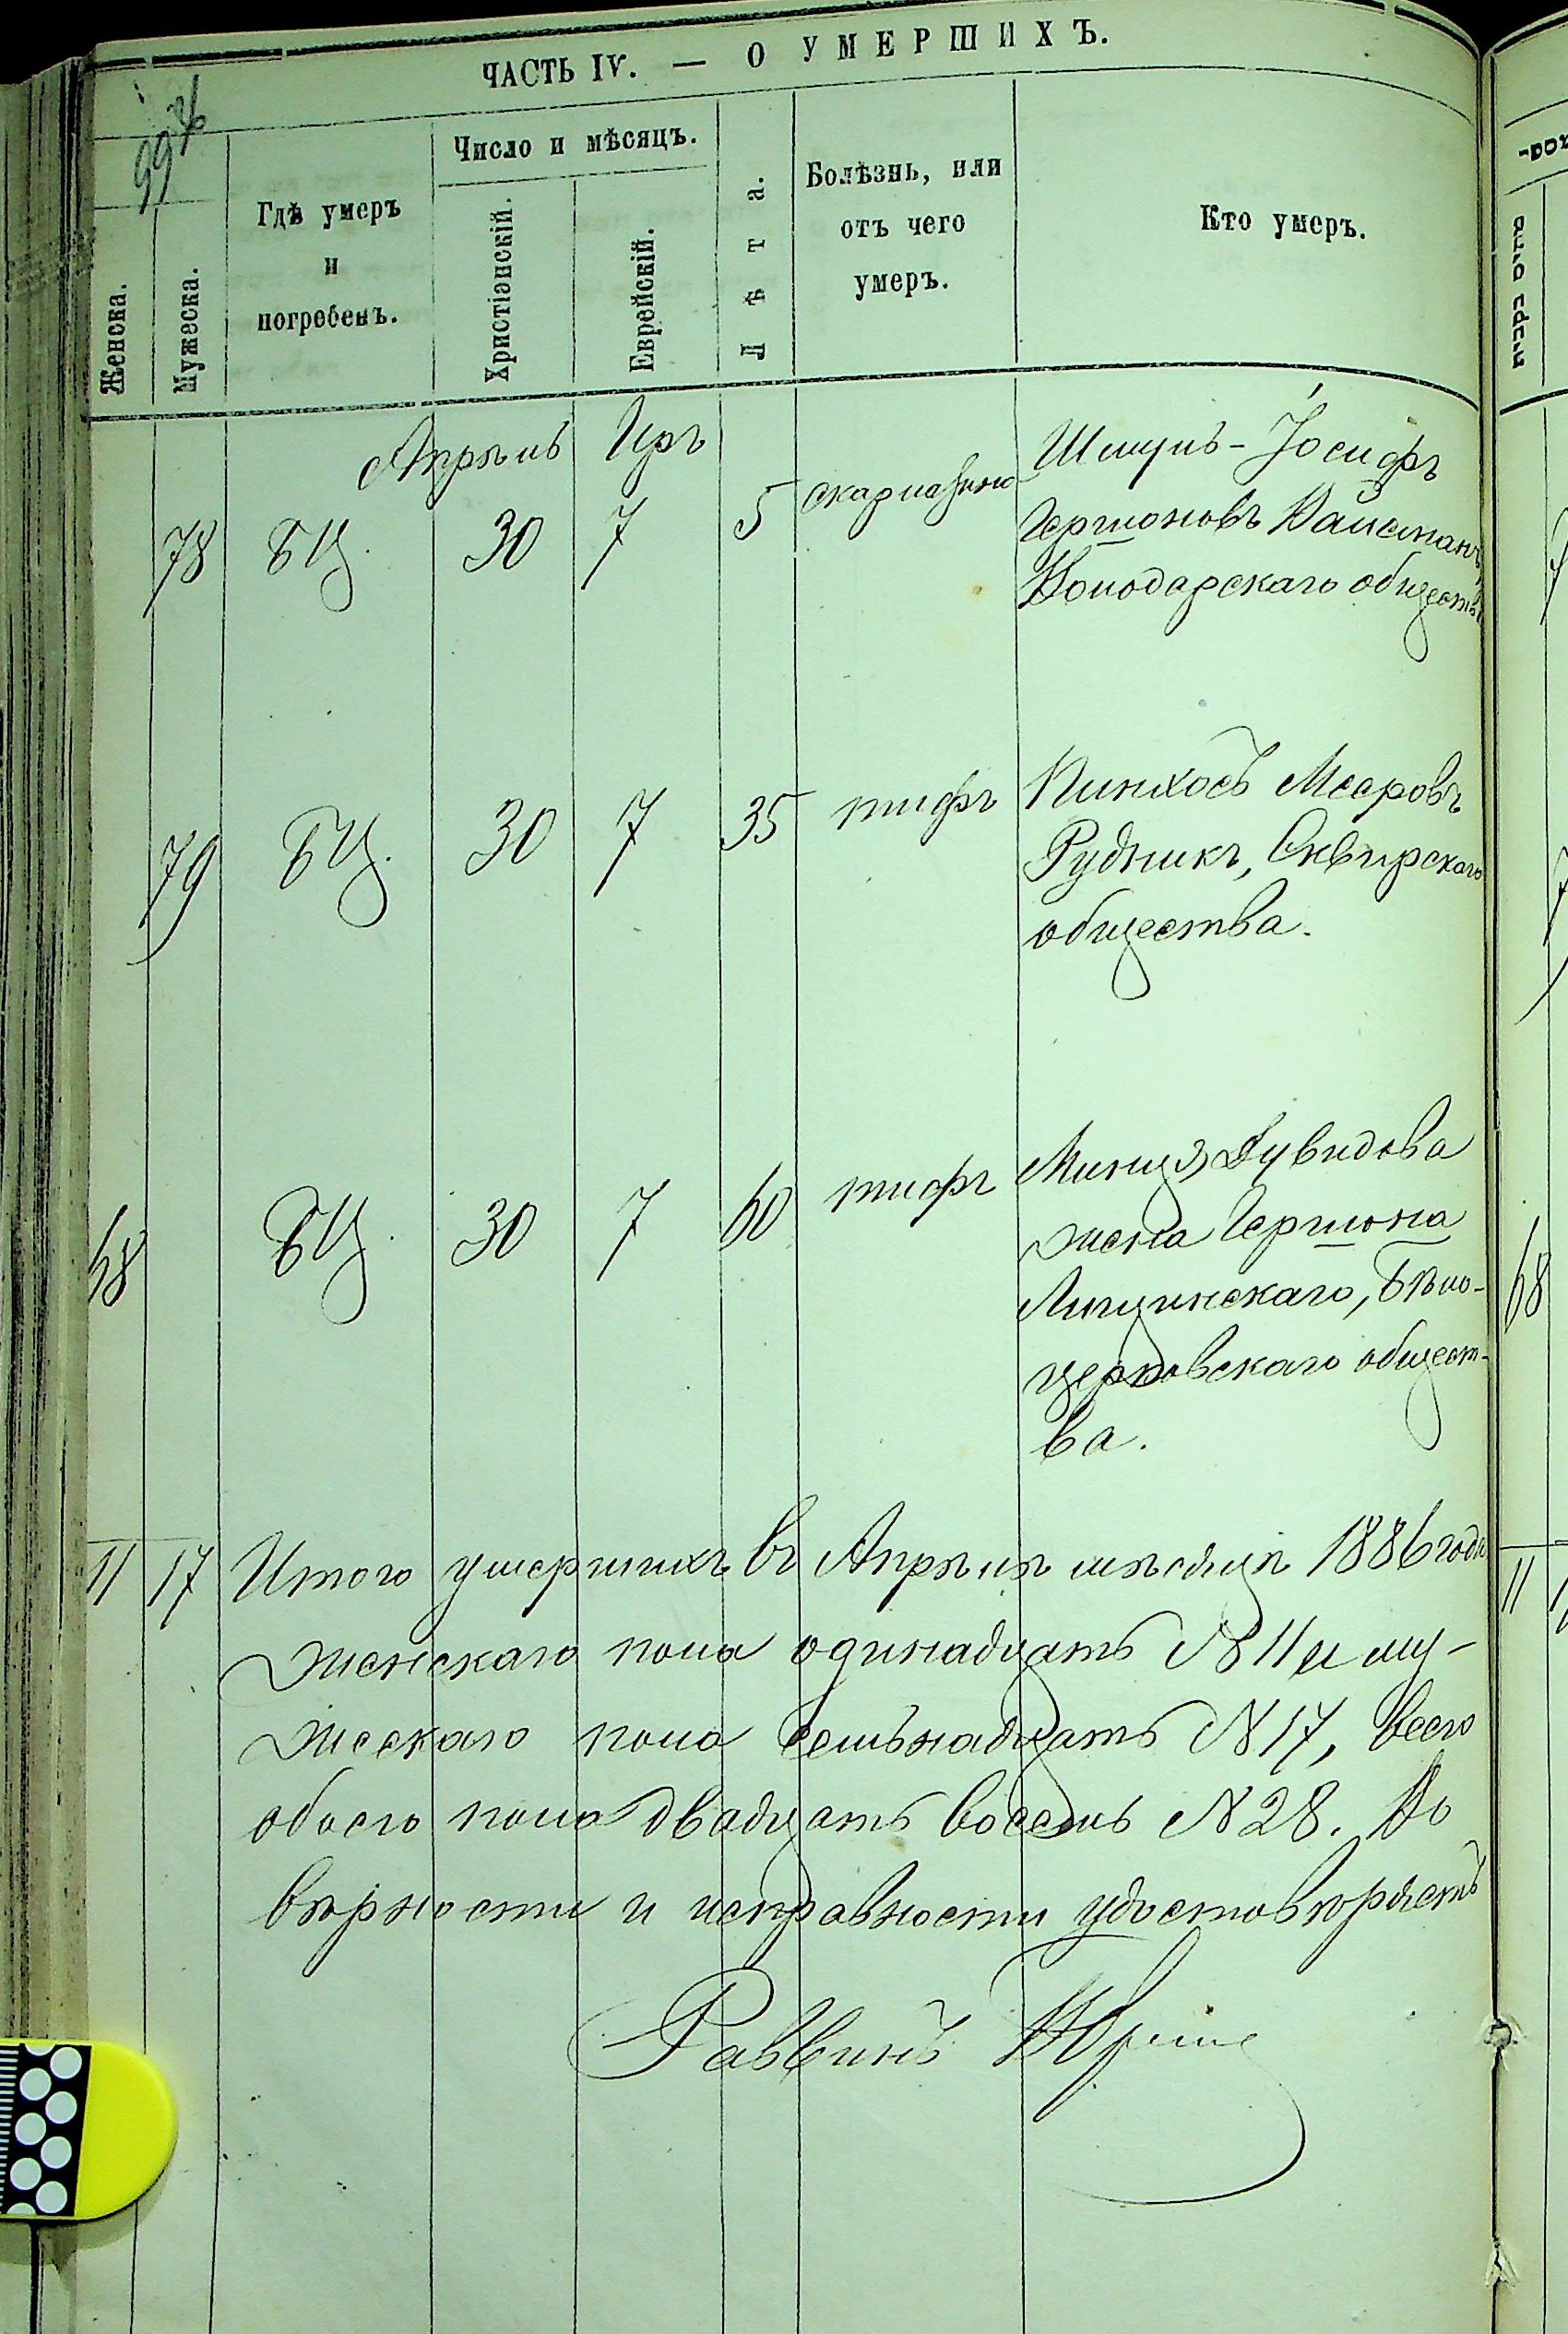 ЧАСТЬ IV. — О УМЕРШИХЪ.
Женска.
Мужеска.
Гдѣ умеръ
и
погребенъ.
Число и мѣсяцъ.
Христіанскій.
Еврейскій.
Лѣта.
Болѣзнь, или
отъ чего
умеръ.
Кто умеръ.
Апрѣль Іiръ
78 БЦ. 30 7 5 скарлатина Шмуль-Іосифъ
Гершоновъ Вайсманъ,
Володарскаго общества
79 БЦ. 30 7 35 тифъ Пинхосъ Мееровъ
Рудникъ, Сквирскаго
общества.
68 БЦ. 30 7 60 тифъ Миндз Дувидова
жена Гершона
Липшинскаго, Бѣло-
церковскаго общест-
ва.
11 17 Итого умершихъ въ Апрѣлѣ мѣсяцѣ 1886 года
женскаго пола одинадцать N 11 и му-
жескаго пола семьнадцать N 17, всего
обоего пола двадцать восемь N 28. Въ
вѣрности и исправности удостовѣряетъ
Раввинъ